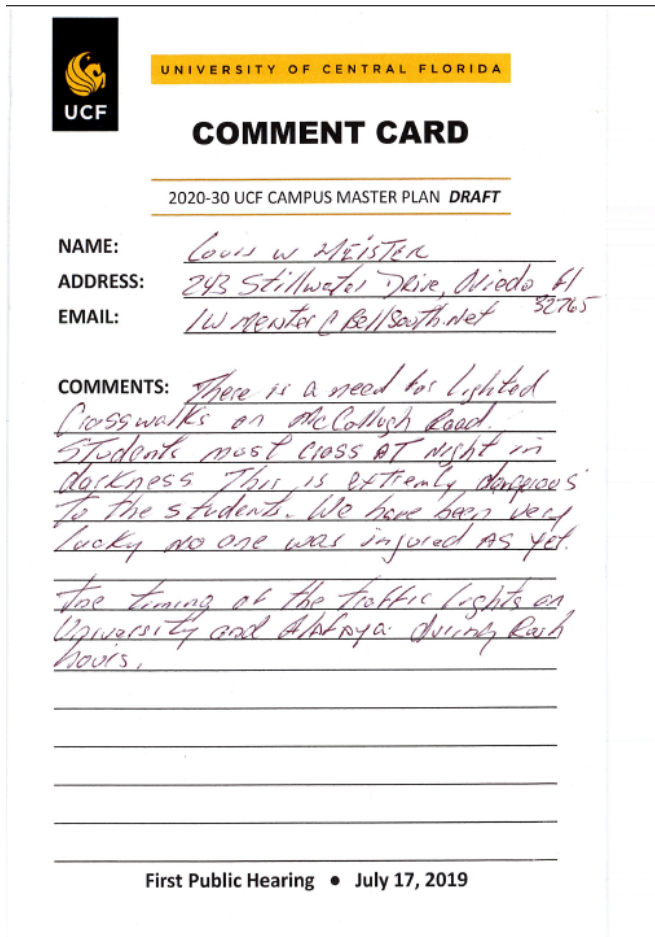 UCF
UNIVERSITY OF CENTRAL FLORIDA
COMMENT CARD
2020-30 UCF CAMPUS MASTER PLAN DRAFT
NAME: Louis W MEISTER
ADDRESS: 243 Stillwater Drive, Oviedo Fl
32765
EMAIL: lwmeister@Bellsouth.net
COMMENTS: There is a need for Lighted
Crosswalks on McCollugh Road.
Students must cross AT Night in
darkness This is extremly dangerous
To the students. We have been very
lucky no one was injured AS yet.
The timing of the traffic lights on
University and Alafaya during Rush
hours.
First Public Hearing • July 17, 2019